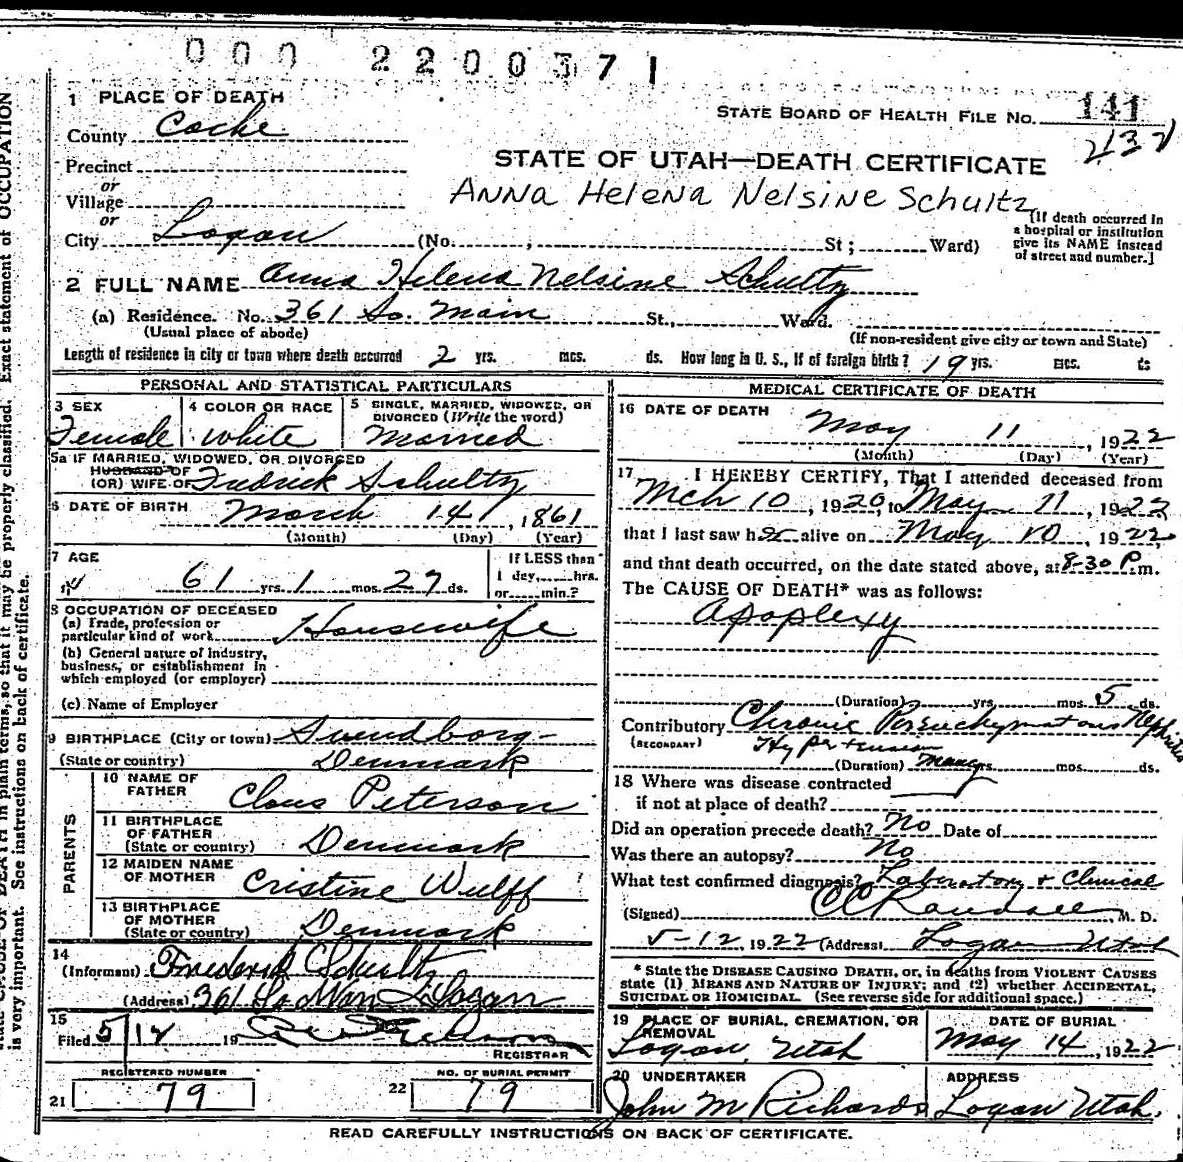 000 2200371
1 PLACE OF DEATH
County Cache
STATE BOARD OF HEALTH FILE No. 141
432
Precinct
or
Village
or
STATE OF UTAH—DEATH CERTIFICATE
Anna Helena Nelsine Schultz
City Logan (No. , St; Ward)
[If death occurred in
a hospital or institution
give its NAME instead
of street and number.]
2 FULL NAME Anna Helena Nelsine Schultz
(a) Residence. No. 361 So. Main St., Ward.
(Usual place of abode)
(If non-resident give city or town and State)
Length of residence in city or town where death occurred 2 yrs. mos. ds. How long in U. S., if of foreign birth? 19 yrs. mos. ds
PERSONAL AND STATISTICAL PARTICULARS
3 SEX
Female
4 COLOR OR RACE
White
5 SINGLE, MARRIED, WIDOWED, OR
DIVORCED (Write the word)
Married
5a IF MARRIED, WIDOWED, OR DIVORCED
HUSBAND OF
(OR) WIFE OF Fredrick Schultz
6 DATE OF BIRTH March 14, 1861
(Month) (Day) (Year)
7 AGE
61 yrs. 1 mos. 27 ds.
If LESS than
1 day, hrs.
or min.?
8 OCCUPATION OF DECEASED
(a) Trade, profession or
particular kind of work Housewife
(b) General nature of industry,
business, or establishment in
which employed (or employer)
(c) Name of Employer
9 BIRTHPLACE (City or town) Svendborg
(State or country) Denmark
PARENTS
10 NAME OF
FATHER Claus Peterson
11 BIRTHPLACE
OF FATHER
(State or country) Denmark
12 MAIDEN NAME
OF MOTHER Cristine Wulff
13 BIRTHPLACE
OF MOTHER
(State or country) Denmark
14
(Informant) Frederick Schultz
(Address) 361 So Main Logan
15
Filed 5/12 19
REGISTRAR
REGISTERED NUMBER
21 79
NO. OF BURIAL PERMIT
22 79
MEDICAL CERTIFICATE OF DEATH
16 DATE OF DEATH
May 11, 1922
(Month) (Day) (Year)
17 I HEREBY CERTIFY, That I attended deceased from
Mch 10, 1920, to May 11, 1922,
that I last saw her alive on May 10, 1922,
and that death occurred, on the date stated above, at 8-30 P.m.
The CAUSE OF DEATH* was as follows:
Apoplexy
(Duration) yrs. mos. 5 ds.
Contributory Chronic Parenchymatous Nephritis
(SECONDARY) Hypertension
(Duration) Many yrs. mos. ds.
18 Where was disease contracted
if not at place of death?
Did an operation precede death? No Date of
Was there an autopsy? No
What test confirmed diagnosis? Laboratory & Clinical
(Signed) CC Randall, M. D.
5-12, 1922 (Address) Logan Utah
* State the DISEASE CAUSING DEATH, or, in deaths from VIOLENT CAUSES
state (1) MEANS AND NATURE OF INJURY; and (2) whether ACCIDENTAL,
SUICIDAL OR HOMICIDAL. (See reverse side for additional space.)
19 PLACE OF BURIAL, CREMATION, OR
REMOVAL
Logan, Utah
DATE OF BURIAL
May 14, 1922
20 UNDERTAKER
John M Richards
ADDRESS
Logan Utah.
READ CAREFULLY INSTRUCTIONS ON BACK OF CERTIFICATE.
in plain terms, so that it may be properly classified. Exact statement of OCCUPATION
is very important. See instructions on back of certificate.